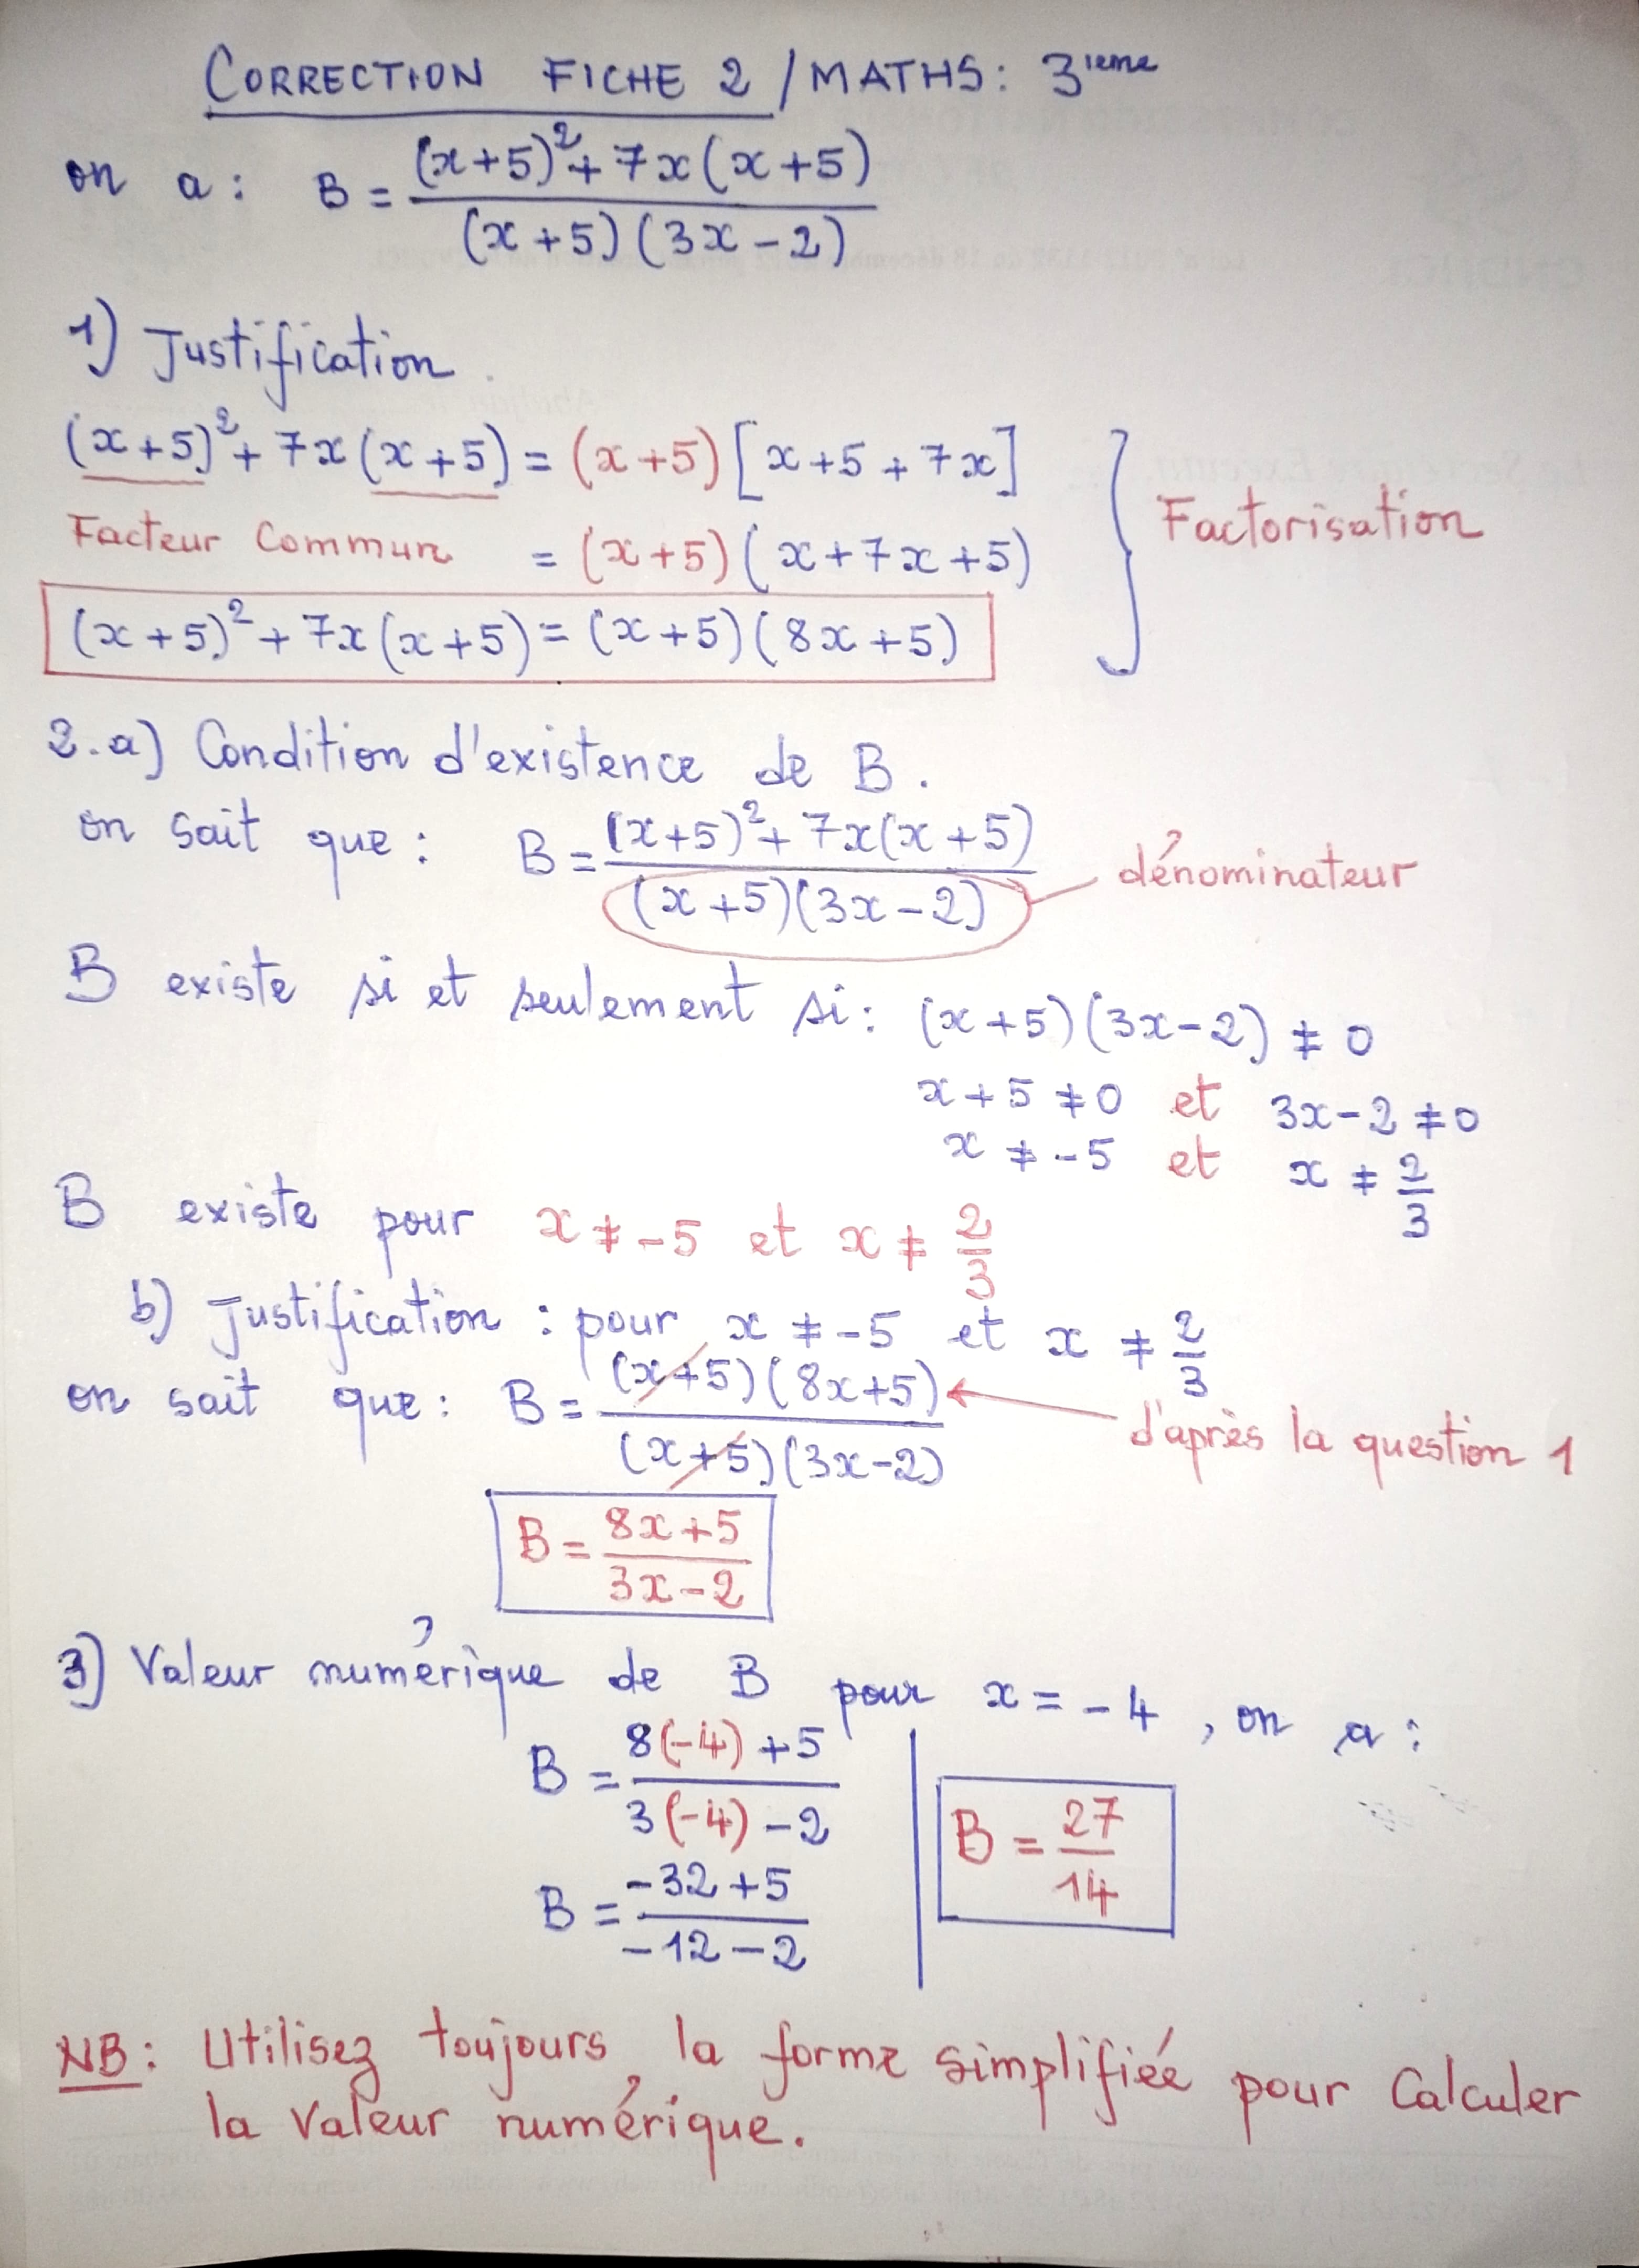 CORRECTION FICHE 2 / MATHS: 3ieme
on a: B = ((x+5)²+7x(x+5))/((x+5)(3x-2))
1) Justification
(x+5)²+7x(x+5) = (x+5)[x+5+7x]
Facteur Commun = (x+5)(x+7x+5)
(x+5)²+7x(x+5) = (x+5)(8x+5)
} Factorisation
2.a) Condition d'existence de B.
on sait que: B = ((x+5)²+7x(x+5))/((x+5)(3x-2)) dénominateur
B existe si et seulement si: (x+5)(3x-2) ≠ 0
x+5 ≠ 0 et 3x-2 ≠ 0
x ≠ -5 et x ≠ 2/3
B existe pour x ≠ -5 et x ≠ 2/3
b) Justification : pour x ≠ -5 et x ≠ 2/3
on sait que: B = ((x+5)(8x+5))/((x+5)(3x-2)) ← d'après la question 1
B = (8x+5)/(3x-2)
3) Valeur numérique de B pour x = -4, on a:
B = (8(-4)+5)/(3(-4)-2)
B = (-32+5)/(-12-2)
B = 27/14
NB: Utilisez toujours la forme simplifiée pour Calculer
la valeur numérique.